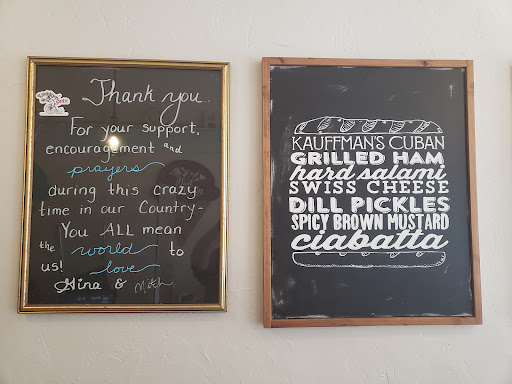 Thank you..
For your support,
encouragement and
prayers
during this crazy
time in our Country-
You ALL mean
the world to
us! love
Gina & Mitch
KAUFFMAN'S CUBAN
GRILLED HAM
hard salami
SWISS CHEESE
DILL PICKLES
SPICY BROWN MUSTARD
ciabatta